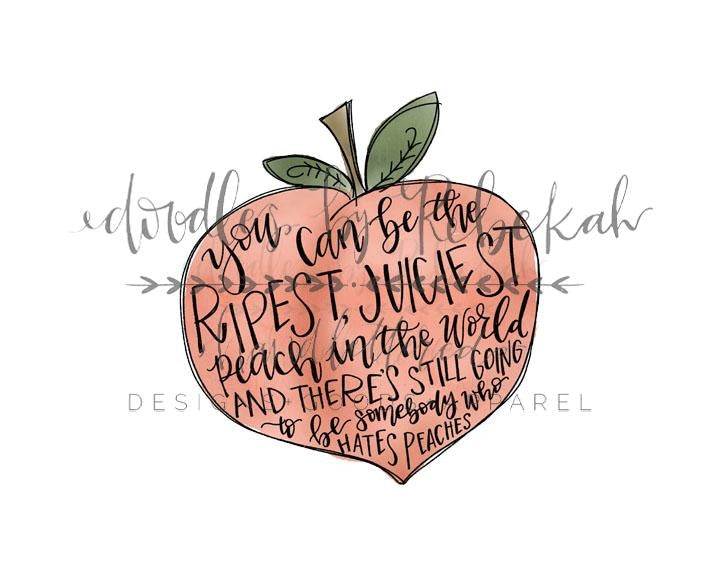 you can be the
RIPEST, JUICIEST
peach in the world
AND THERE'S STILL GOING
to be somebody who
HATES PEACHES
doodles by Rebekah
hand lettered